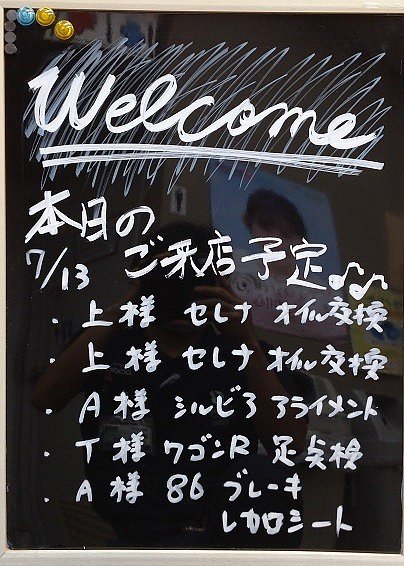 Welcome
本日の
7/13 ご来店予定♪♪
・上様 セレナ オイル交換
・上様 セレナ オイル交換
・A様 シルビア アライメント
・T様 ワゴンR 足点検
・A様 86 ブレーキ
レカロシート